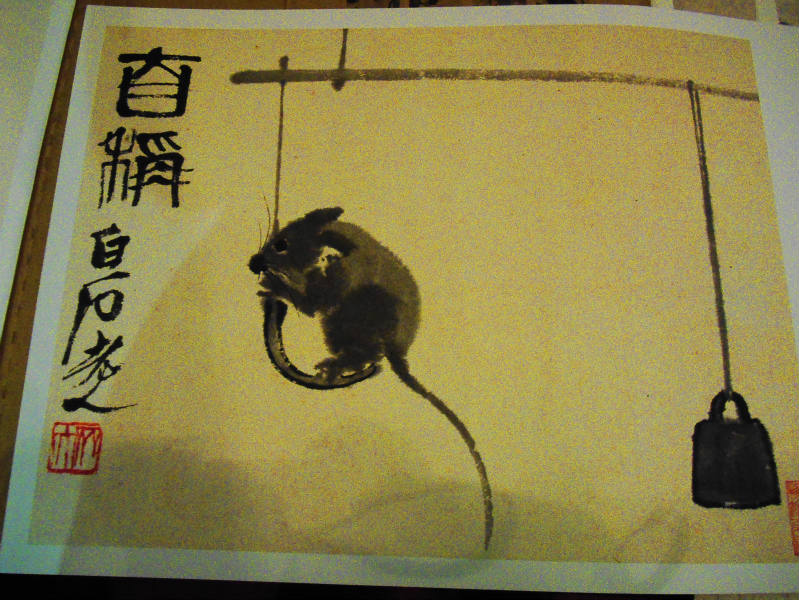 自稱
白石老人